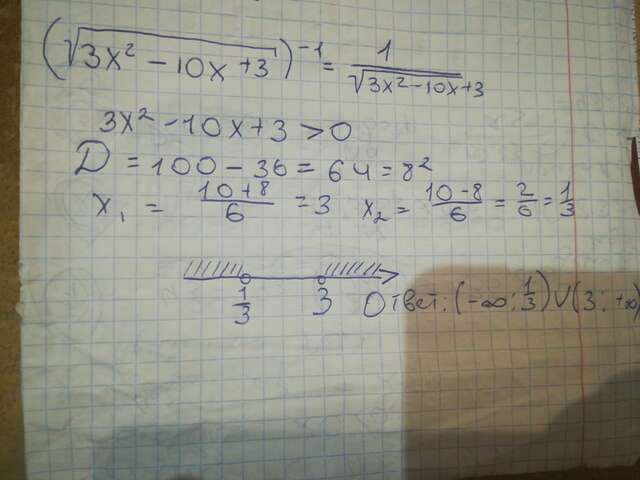 (√3x² − 10x + 3)⁻¹ = 1/√3x² − 10x + 3
3x² − 10x + 3 > 0
D = 100 − 36 = 64 = 8²
x₁ = 10 + 8/6 = 3 x₂ = 10 − 8/6 = 2/6 = 1/3
1/3 3 Ответ: (−∞; 1/3) ∪ (3; +∞)